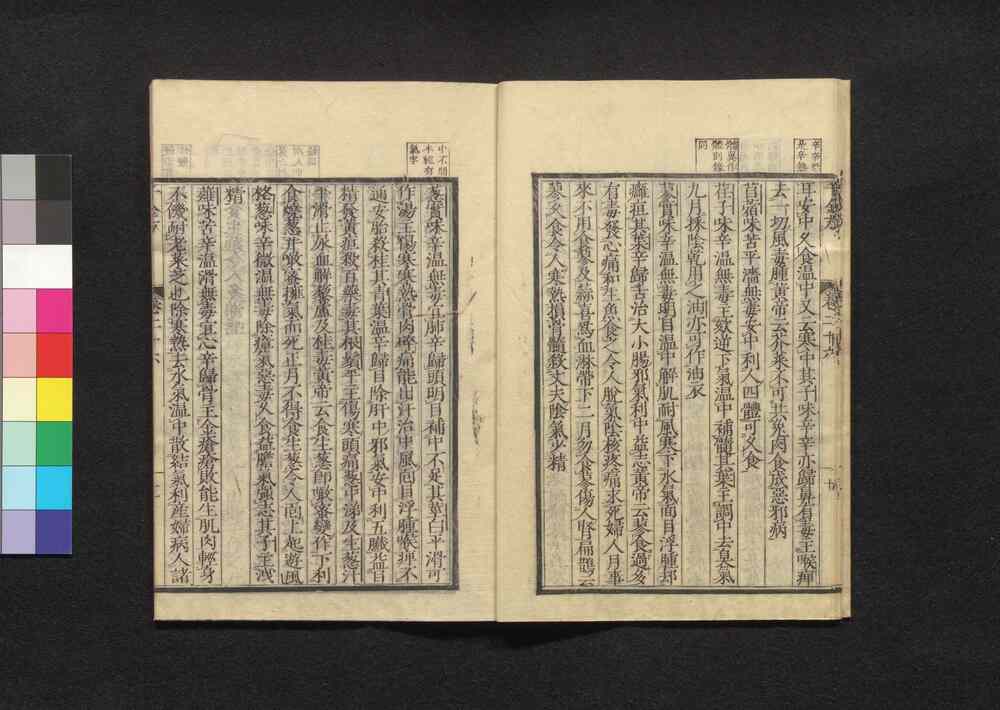 耳安中久食温中又云寒中其子味辛辛亦歸鼻有毒主喉痺
去一切風毒腫黃帝云芥菜不可共兔肉食成惡邪病
苜蓿味苦平濇無毒安中利人四體可久食
荏子味辛温無毒主欬逆下氣温中補髓其葉主調中去臭氣
九月採陰乾用之油亦可作油衣
蓼實味辛温無毒明目温中解肌耐風寒下水氣面目浮腫却
癰疽其葉辛歸舌治大小腸邪氣利中益志黃帝云蓼食過多
有毒發心痛和生魚食之令人脫氣陰核疼痛求死婦人月事
來不用食蓼及蒜喜爲血淋帶下二月勿食蓼傷人腎扁鵲云
蓼久食令人寒熱損骨髓殺丈夫陰氣少精
葱實味辛温無毒宜肺辛歸頭明目補中不足其莖白平滑可
作湯主傷寒寒熱骨肉碎痛能出汗治中風面目浮腫喉痺不
通安胎殺桂其青葉温辛歸目除肝中邪氣安中利五臟益目
精發黃疸殺百藥毒其根鬚平主傷寒頭痛葱中涕及生葱汁
平滑止尿血解藜蘆及桂毒黃帝云食生葱卽啖蜜變作下利
食燒葱并啖蜜擁氣而死正月不得食生葱令人面上起遊風
格葱味辛微温無毒除瘴氣惡毒久食益膽氣強志其子主洩
精
薤味苦辛温滑無毒宜心辛歸骨主金瘡瘡敗能生肌肉輕身
不饑耐老菜芝也除寒熱去水氣温中散結氣利產婦病人諸